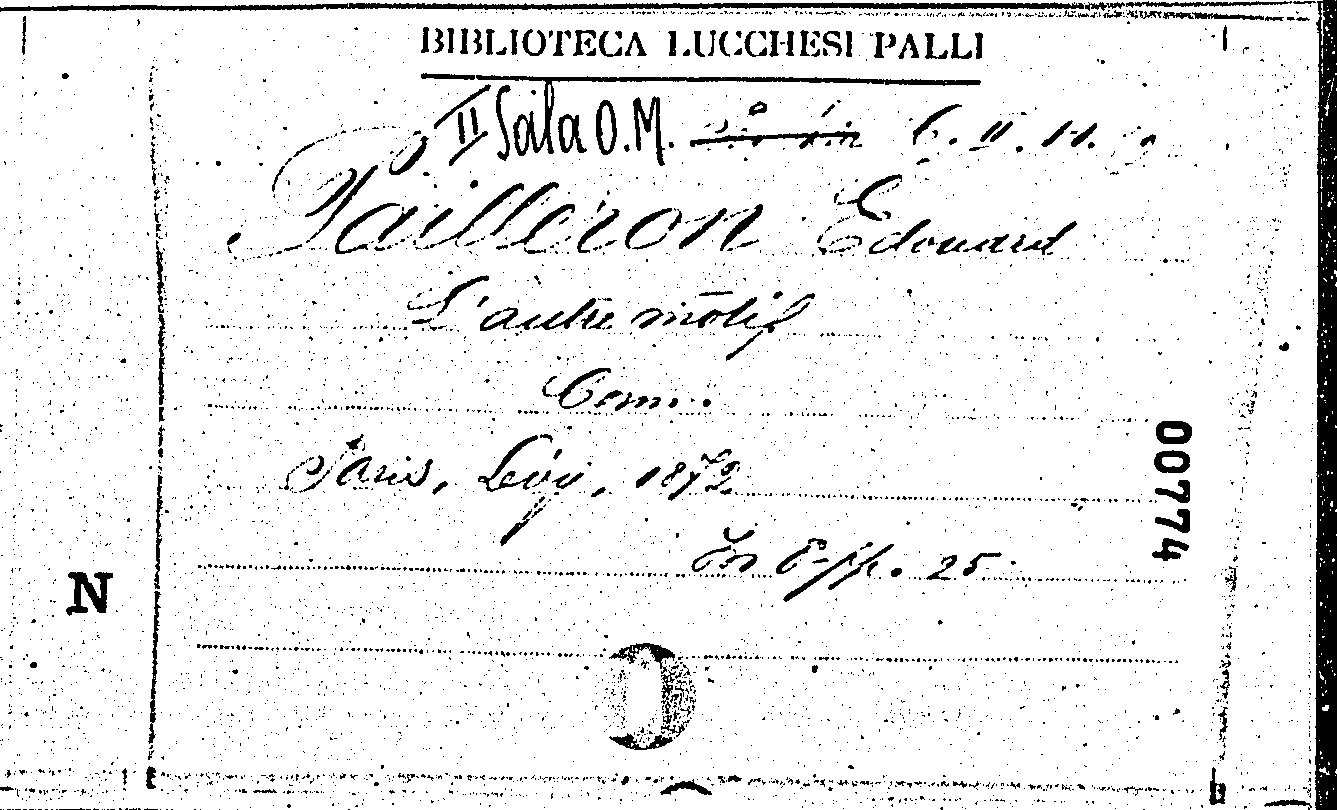 BIBLIOTECA LUCCHESI PALLI
II Sala O.M. C. II. 11.
Pailleron Edouard
L'autre motif
Com.
Paris, Lévy, 1872
In 8 - pp. 25
007774
N